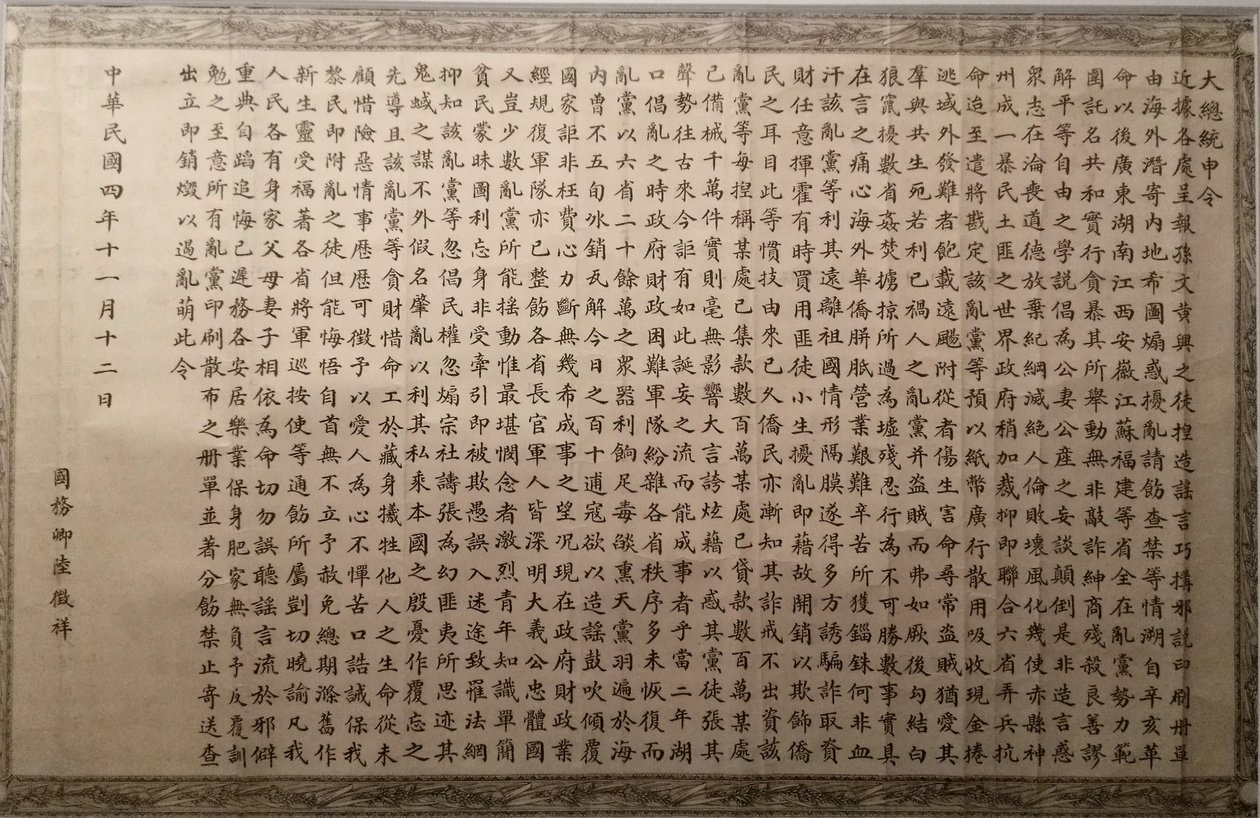 大總統申令
近據各處呈報孫文黃興之徒捏造謠言巧搆邪説印刷册單
由海外潛寄內地希圖煽惑擾亂請飭查禁等情溯自辛亥革
命以後廣東湖南江西安徽江蘇福建等省全在亂黨勢力範
圍託名共和實行貪暴其所舉動無非敲詐紳商殘殺良善謬
解平等自由之學説倡為公妻公產之妄談顛倒是非造言惑
眾志在淪喪道德放棄紀綱滅絕人倫敗壞風化幾使赤縣神
州成一暴民土匪之世界政府稍加裁抑即聯合六省弄兵抗
命迨至遣將戡定該亂黨等預以紙幣廣行散用吸收現金捲
逃域外發難者飽載遠颺附從者傷生害命尋常盜賊猶愛其
羣與共生死若利己禍人之亂黨并盜賊而弗如厥後勾結白
狼竄擾數省姦焚擄掠所過為墟殘忍行為不可勝數事實具
在言之痛心海外華僑胼胝營業艱難辛苦所獲錙銖何非血
汗該亂黨等利其遠離祖國情形隔膜遂得多方誘騙詐取資
財任意揮霍有時買用匪徒小生擾亂即藉故開銷以欺飾僑
民之耳目此等慣技由來已久僑民亦漸知其詐戒不出資該
亂黨等每捏稱某處已集款數百萬某處已貸款數百萬某處
已備械千萬件實則毫無影響大言誇炫藉以惑其黨徒張其
聲勢往古來今詎有如此誕妄之流而能成事者乎當二年湖
口倡亂之時政府財政困難軍隊紛雜各省秩序多未恢復而
亂黨以六省二十餘萬之眾器利餉足毒燄熏天黨羽遍於海
內曾不五旬冰銷瓦解今日之百十逋寇欲以造謠鼓吹傾覆
國家詎非枉費心力斷無幾希成事之望况現在政府財政業
經規復軍隊亦已整飭各省長官軍人皆深明大義公忠體國
又豈少數亂黨所能搖動惟最堪憫念者激烈青年知識單簡
貧民蒙昧圖利忘身非受牽引即被欺愚誤入迷途致罹法網
抑知該亂黨等忽倡民權忽煽宗社譸張為幻匪夷所思迹其
鬼蜮之謀不外假名肇亂以利其私乘本國之殷憂作覆忘之
先導且該亂黨等貪財惜命工於藏身犧牲他人之生命從未
顧惜險惡情事歷歷可徵予以愛人為心不憚苦口誥誡保我
黎民即附亂之徒但能悔悟自首無不立予赦免總期滌舊作
新生靈受福著各省將軍巡按使等通飭所屬剴切曉諭凡我
人民各有身家父母妻子相依為命切勿誤聽謠言流於邪僻
重典自蹈追悔已遲務各安居樂業保身肥家無負予反覆訓
勉之至意所有亂黨印刷散布之册單並著分飭禁止寄送查
出立即銷燬以遏亂萌此令
中華民國四年十一月十二日
國務卿陸徵祥